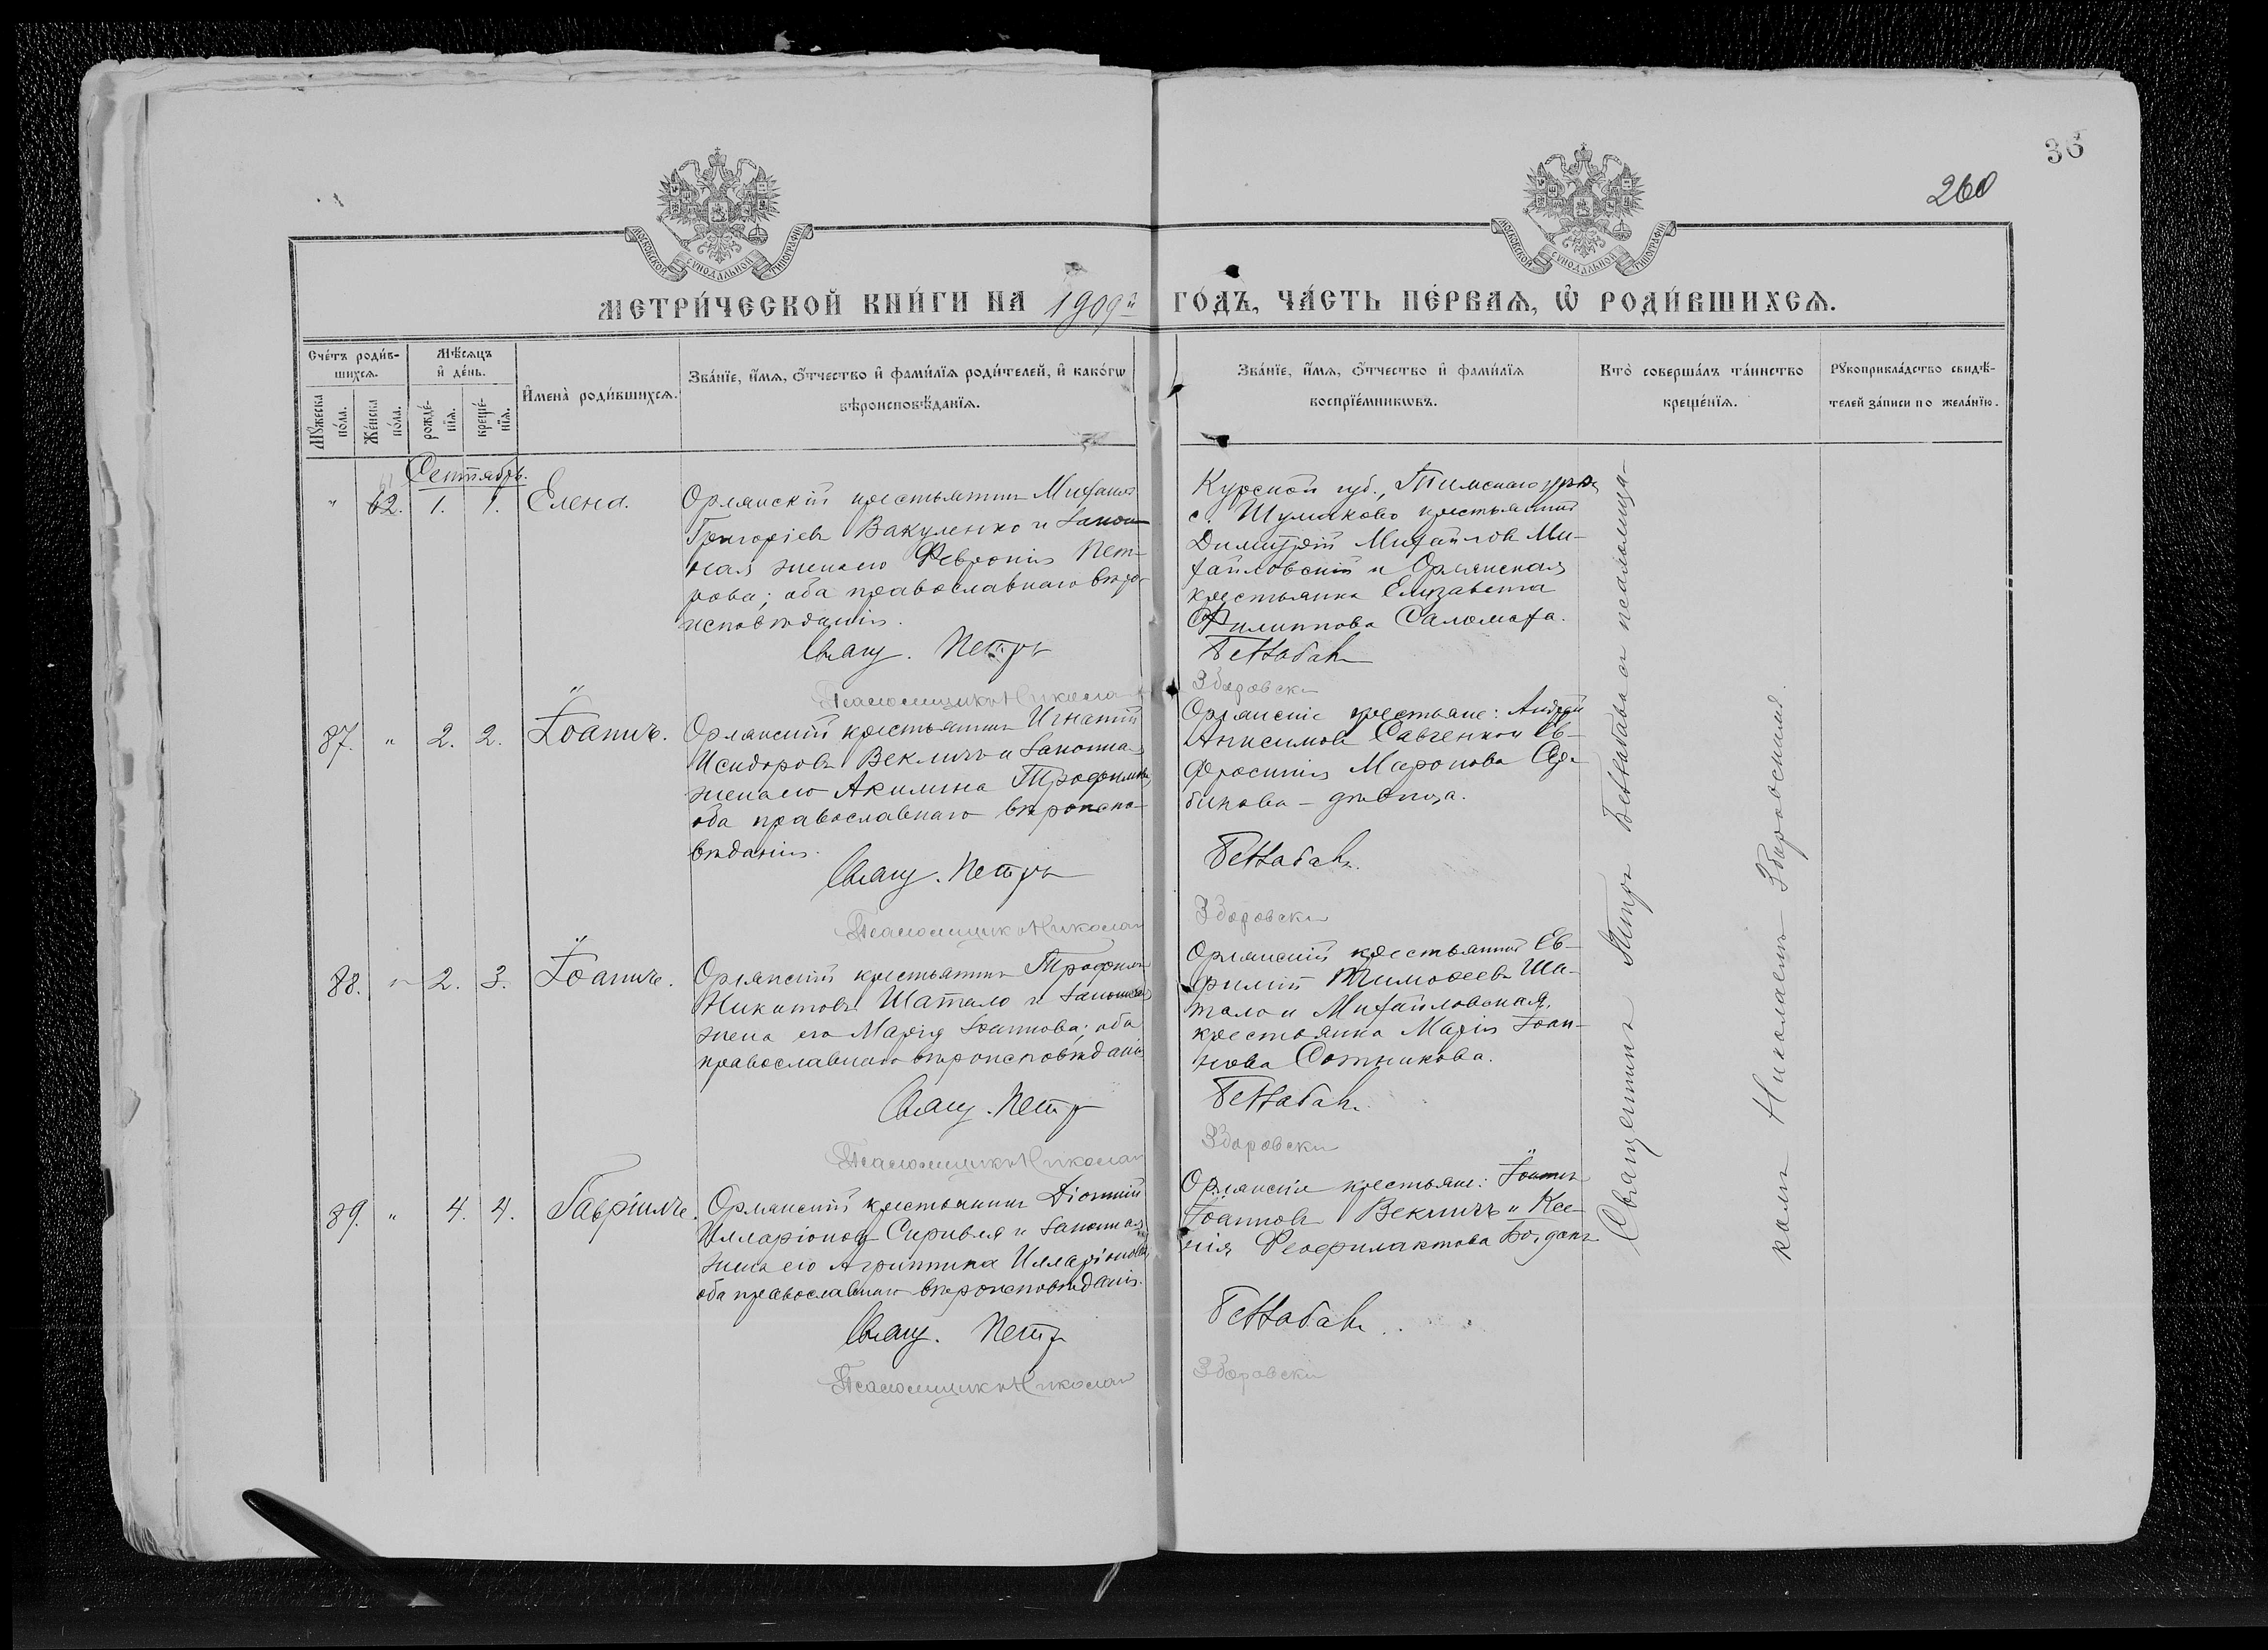 36
260
МОСКОВСКОЙ СѴНОДАЛЬНОЙ ТИПОГРАФІИ
МОСКОВСКОЙ СѴНОДАЛЬНОЙ ТИПОГРАФІИ
МЕТРИ́ЧЕСКОЙ КНИ́ГИ НА 1909й ГО́ДЪ, ЧА́СТЬ ПЕ́РВАѦ, Ѿ РОДИ́ВШИХСѦ.
Сче́тъ роди́в-
шихсѧ.
Мꙋжеска по́ла.
Же́нска по́ла.
Мѣ́сѧцъ
и҆ де́нь.
рожде́-
нїѧ.
креще́-
нїѧ.
И҆мена̀ роди́вшихсѧ.
Зва́нїе, и҆́мѧ, ѻ҆́тчество и҆ фами́лїѧ роди́телей, и҆ како́гѡ
вѣроисповѣ́данїѧ.
Зва́нїе, и҆́мѧ, ѻ҆́тчество и҆ фами́лїѧ
воспрїе́мникѡвъ.
Кто̀ соверша́лъ та́инство
креще́нїѧ.
Рꙋкоприкла́дство свидѣ́-
телей за́писи по жела́нїю.
Сентябрь.
" 62. 1. 1. Елена.
Орлянскій крестьянинъ Михаилъ
Григоріевъ Вакуленко и закон-
ная жена его Феврония Пет-
рова; оба православнаго вѣро-
исповѣданія.
Свящ. Петръ
Псаломщикъ Николай
Курской губ., Тимскаго уѣзда
с. Шумаково крестьянинъ
Димитрій Михайловъ Ми-
хайловскій и Орлянская
крестьянка Елизавета
Филиппова Саломаха.
Беззабавъ
Зборовскій
87. " 2. 2. Іоаннъ.
Орлянскій крестьянинъ Игнатій
Исидоровъ Векличъ и законная
жена его Акилина Трофимова,
оба православнаго вѣроиспо-
вѣданія.
Свящ. Петръ
Псаломщикъ Николай
Орлянскіе крестьяне: Андрей
Анисимовъ Савченко и Ев-
фросинія Миронова
бинова - дѣвица.
Беззабавъ
Зборовскій
88. " 2. 3. Іоаннъ.
Орлянскій крестьянинъ Трофимъ
Никитовъ Шатало и законная
жена его Марія Іоаннова; оба
православнаго вѣроисповѣданія
Свящ. Петръ
Псаломщикъ Николай
Орлянскій крестьянинъ Ев-
фимій Тимоѳеевъ Ша-
тало и Михайловская,
крестьянка Марія Іоан-
нова Сотникова.
Беззабавъ
Зборовскій
89. " 4. 4. Гавріилъ.
Орлянскій крестьянинъ Діонисій
Илларіоновъ и законная
жена его Агриппина Илларіонова
оба православнаго вѣроисповѣданія.
Свящ. Петръ
Псаломщикъ Николай
Орлянскіе крестьяне: Іоаннъ
Іоанновъ Векличъ и Ксе-
нія Феофилактова Богданъ
Беззабавъ
Зборовскій
Священникъ Петръ Беззабава съ псаломщи-
комъ Николаемъ Зборовскимъ.